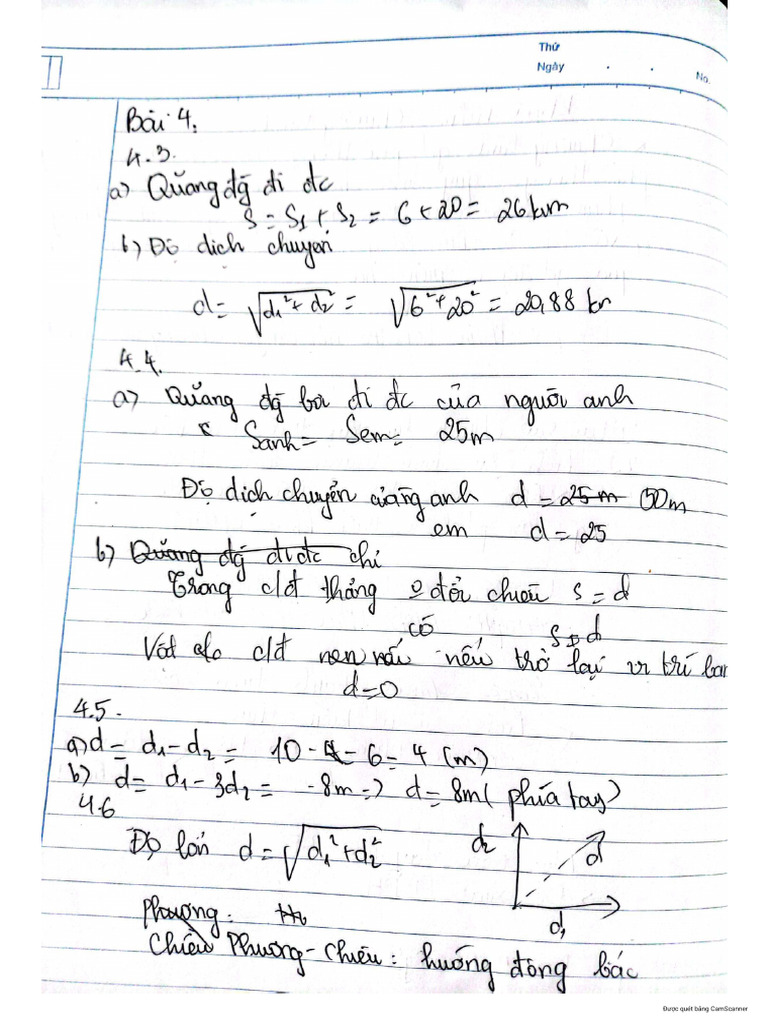 Thứ
Ngày . .
No.
Bài 4:
4.3.
a) Quãng đg đi đc
s = s₁ + s₂ = 6 + 20 = 26 km
b) Độ dịch chuyển
d = √d₁² + d₂² = √6² + 20² = 20,88 km
4.4.
a) Quãng đg bơi đi đc của người anh
Sanh = Sem = 25m
Độ dịch chuyển của ng anh d = 25m 50m
em d = 25
b) Quãng đg đi đc chỉ
Trong c/đ thẳng o đổi chiều s = d
có s = d
Vật c/đ nếu trở lại vị trí ban
d = 0
4.5.
a) d = d₁ - d₂ = 10 - 6 = 4 (m)
b) d = d₁ - 3d₂ = -8m => d = 8m (phía tay)
4.6
Độ lớn d = √d₁² + d₂²
d₂
d
d₁
Phương:
Chiều Phương - Chiều: hướng đông bắc
Được quét bằng CamScanner